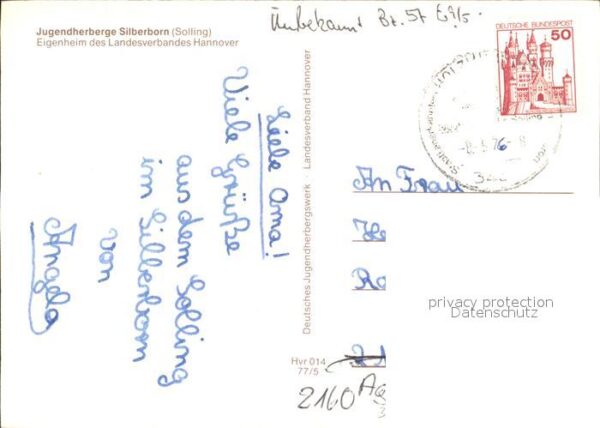 Jugendherberge Silberborn (Solling)
Eigenheim des Landesverbandes Hannover
Unbekannt Bz. 57
DEUTSCHE BUNDESPOST
50
Liebe Oma!
Viele Grüße
aus dem Solling
im Silberborn
von
Angela
Deutsches Jugendherbergswerk - Landesverband Hannover
An Frau
He
Ro
privacy protection
Datenschutz
Hvr 014
77/5
2160